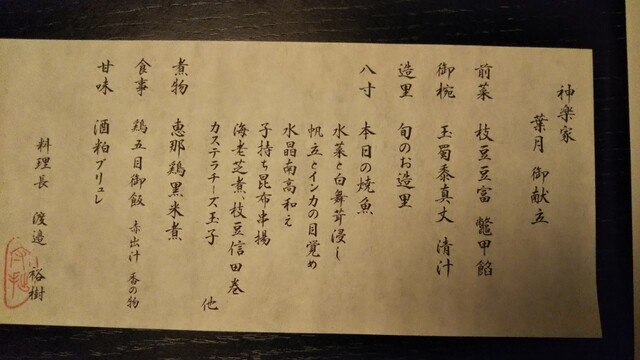 神楽家
葉月 御献立
前菜 枝豆豆富 鼈甲餡
御椀 玉蜀黍真丈 清汁
造里 旬のお造里
八寸 本日の焼魚
水菜と白舞茸浸し
帆立とインカの目覚め
水晶南高和え
子持ち昆布串揚
海老芝煮、枝豆信田巻
カステラチーズ玉子 他
煮物 恵那鶏黒米煮
食事 鶏五目御飯 赤出汁 香の物
甘味 酒粕ブリュレ
料理長 渡邉 裕樹